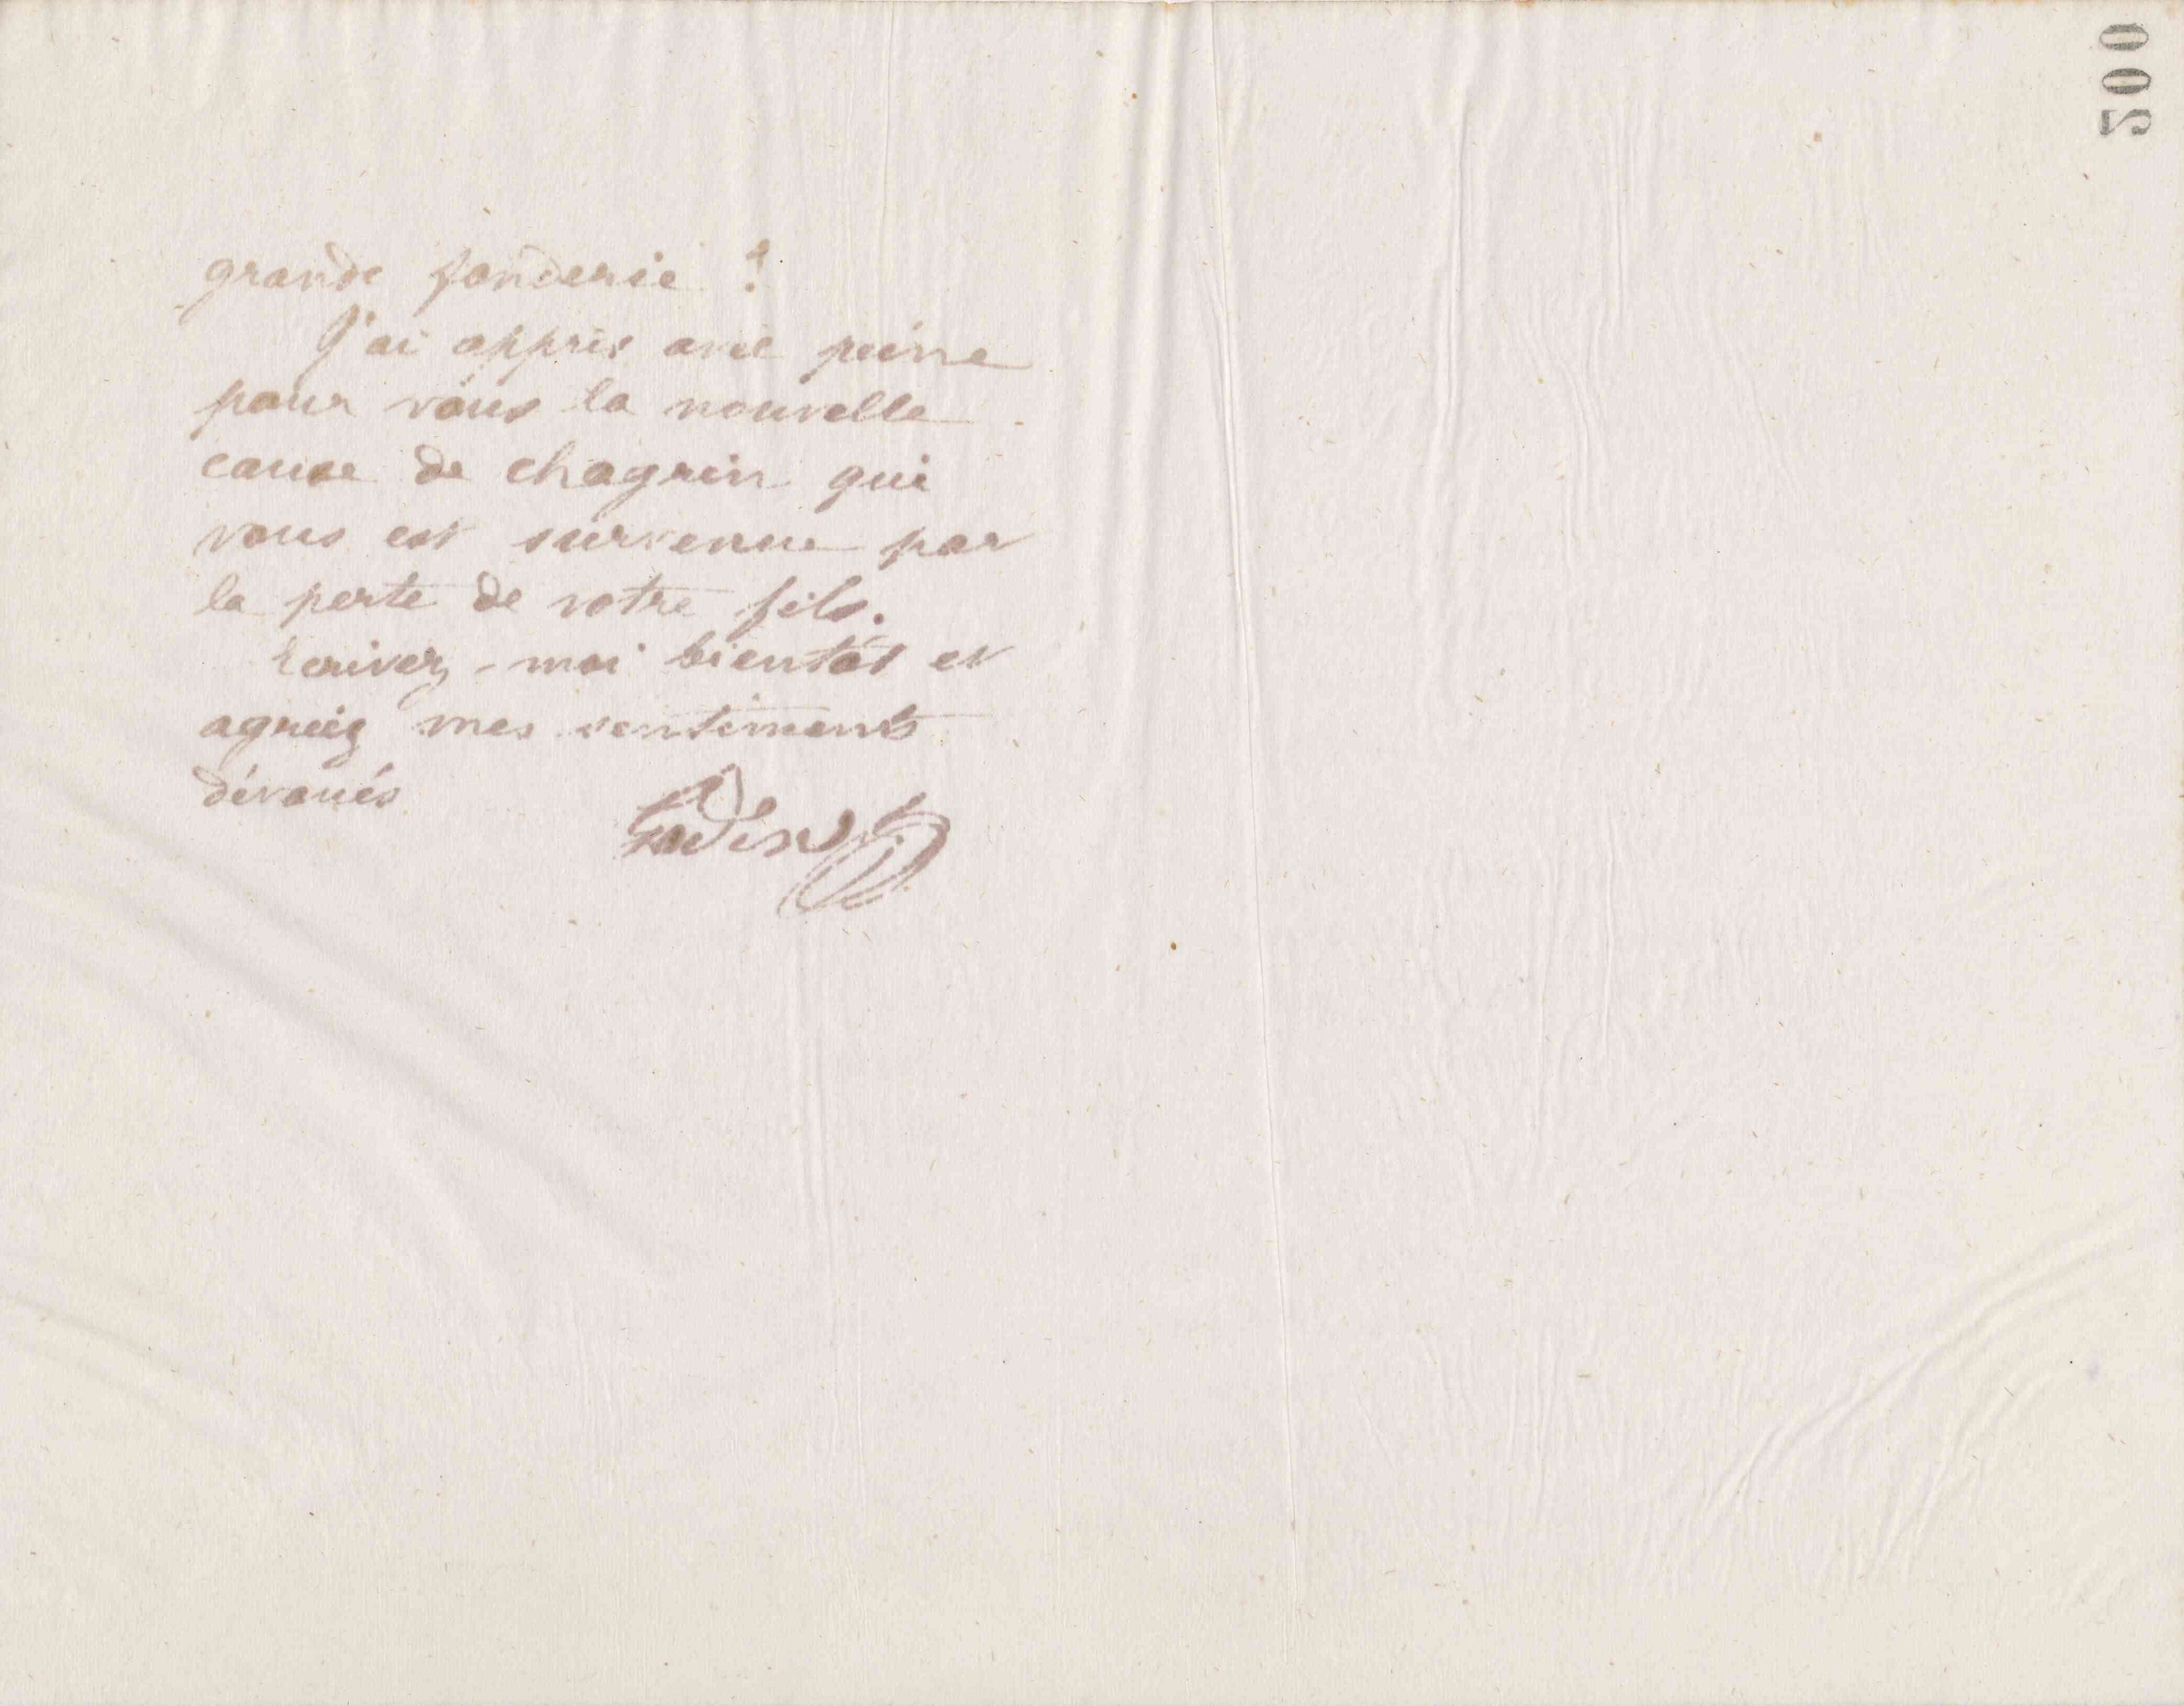 500
grande fonderie ?
J'ai appris avec peine
pour vous la nouvelle
cause de chagrin qui
vous est survenue par
la perte de votre fils.
Ecrivez-moi bientôt et
agréez mes sentiments
dévoués
Godin